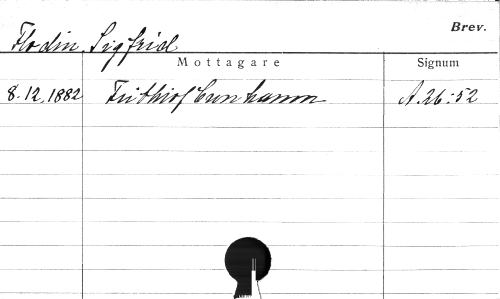 Brev.
Flodin, Sigfrid
Mottagare Signum
8.12.1882 Frithiof Cronhamn A. 26:52